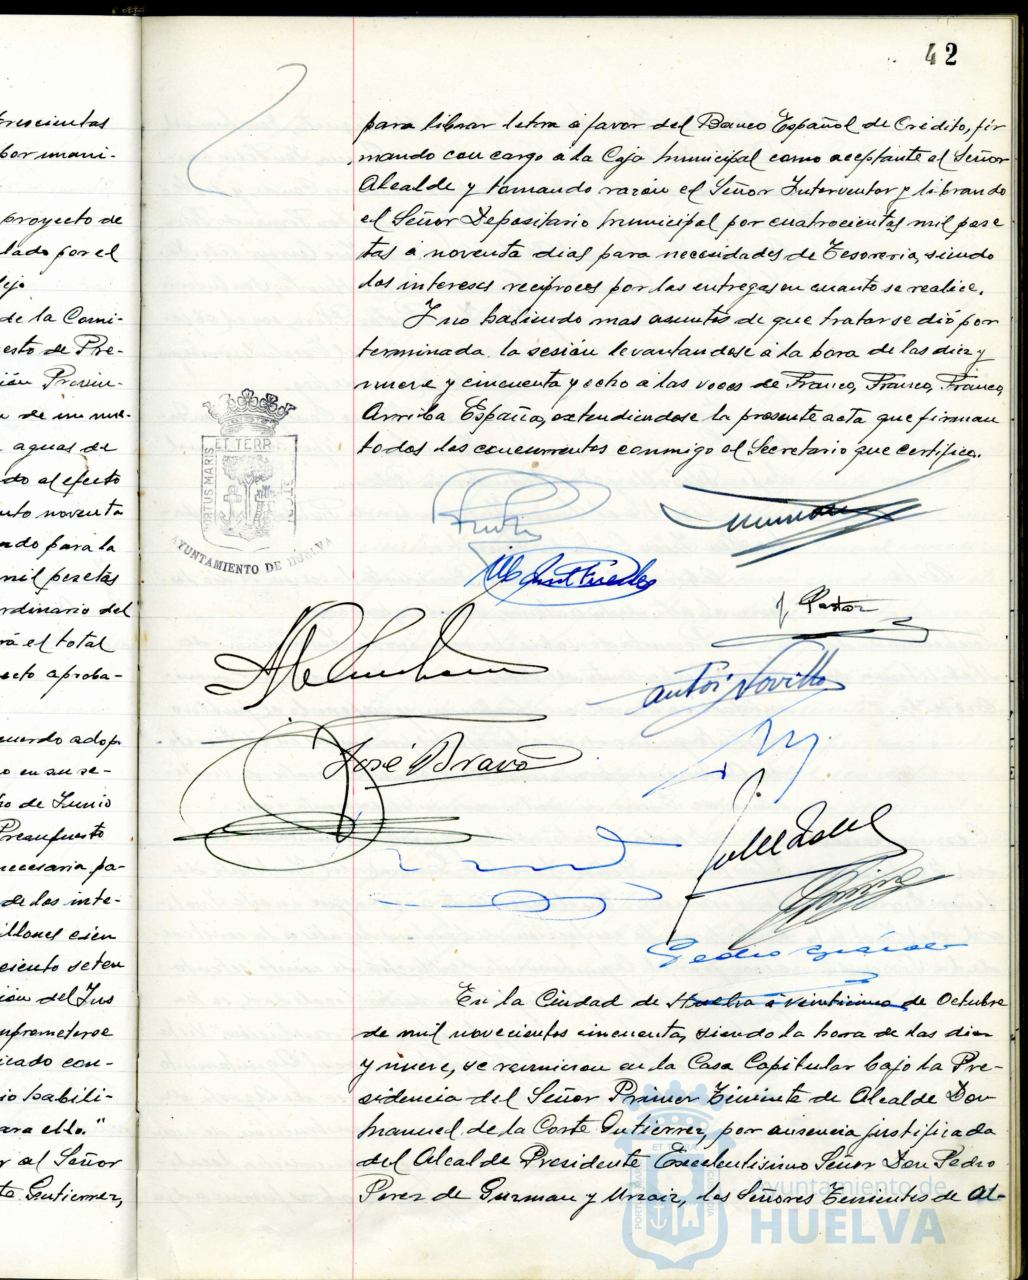 42
para librar letra á favor del Banco Español de Crédito, fir
mando con cargo á la Caja Municipal como aceptante el Señor
Alcalde y tomando razón el Señor Interventor y librando
el Señor Depositario Municipal por cuatrocientas mil pese
tas á noventa dias para necesidades de Tesoreria, siendo
los intereses reciprocos por las entregas en cuanto se realice.
Y no habiendo mas asuntos de que tratar se dió por
terminada la sesión levantandose á la hora de las diez y
nueve y cincuenta y ocho á las voces de Franco, Franco, Franco,
Arriba España, extendiendose la presente acta que firman
todos los concurrentes conmigo el Secretario que certifico.
PORTUS MARIS ET TERR
AYUNTAMIENTO DE HUELVA
J. Pastor
Antoº Novillo
José Bravo
Pedro
En la Ciudad de Huelva á veinticinco de Octubre
de mil novecientos cincuenta, siendo la hora de las diez
y nueve, se reunieron en la Casa Capitular bajo la Pre-
sidencia del Señor Primer Teniente de Alcalde Don
Manuel de la Corte Gutierrez, por ausencia justificada
del Alcalde Presidente Excelentisimo Señor Don Pedro
Perez de Guzman y Urzaiz, los Señores Tenientes de Al-
Ayuntamiento de
HUELVA
trescientas
por unani-
proyecto de
lado por el
ejo
de la Comi-
esto de Pre-
ión Provin-
de un nue-
aguas de
do al efecto
nto noventa
ndo para la
mil pesetas
rdinario del
rá el total
ecto aproba-
cuerdo adop
o en su se-
ho de Junio
Presupuesto
necesaria pa-
de los inte-
illones cien
ciento seten
ión del Ins
omprometerse
icado con-
io habili-
ara ello."
r al Señor
te Gutierrez,